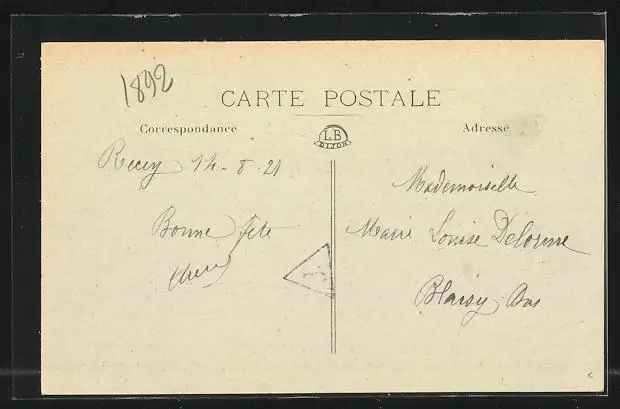 1892
CARTE POSTALE
Correspondance
Adresse
LB
DIJON
Recey 14-8-21
Bonne fête
Mademoiselle
Marie Louise Delorme
Blaisy Bas